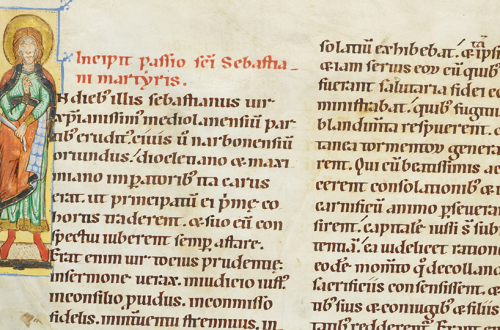 Incipit passio sc̄i Sebastia-
ni martyris.
N dieb; illis sebastianus uir
xp̄ianissim; mediolanensiū par-
tib; erudit; ciuis ū narbonensiū
oriundus; diocletiano & maxi
miano imp̄atorib; ita carus
erat. ut principatū ei p̄me co-
hortis traderent. & suo eū con
spectu iuberent semp̄ astare.
Erat enim uir tocius prudentię.
in sermone uerax. in iudicio iust;
in consilio puidus. in commisso
fidelis. in int̄uentu strennuus. in
solatiū exhibebat.
fuerant salutaria fidei
ministrabat. quib; fugitiu
blandim̄ta respuerent.
tanea tormentoꝝ genera
rent. Qui eū beatissimis
cerent consolationib; &
carnificiū animo p̄seuera
sirent. capitale iussi s̄ subi
tentiā. ea uidelicet ration
eodē momto q̄ decolland
sacrificiis consensissent. &
tib; suis & coniugib; & filiis